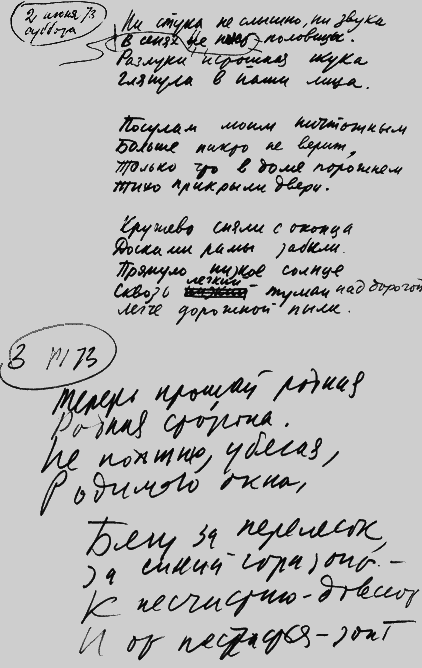 2 июня 73
суббота
Ни стука не слышно, ни звука
В сенях не половицы.
Разлуки огромная мука
Глянула в наши лица.
Посулам моим ничтожным
Больше никто не верит,
Только что в доме порожнем
Тихо прикрыли двери.
Кружево сняли с оконца
Досками рамы забили.
Прянуло низкое солнце
Сквозь легкий туман над дорогой
легче дорожной пыли.
3 VI 73
Теперь прощай родная
Родная сторона.
Не помню, убегая,
Родимого окна,
Бегу за перелесок,
За синий горизонт —
К
И от